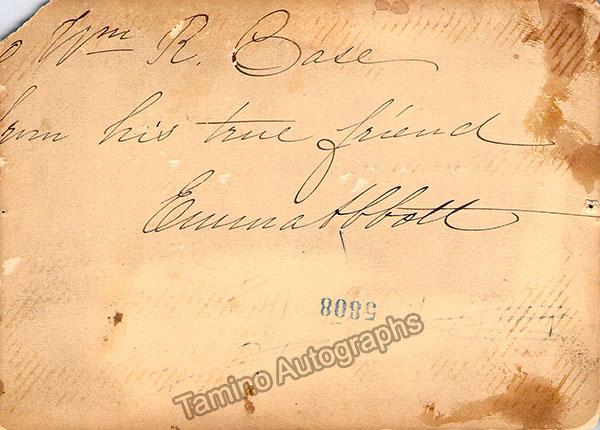 o Wm R. Case
rom his true friend
Emma Abbott
5808
Tamino Autographs